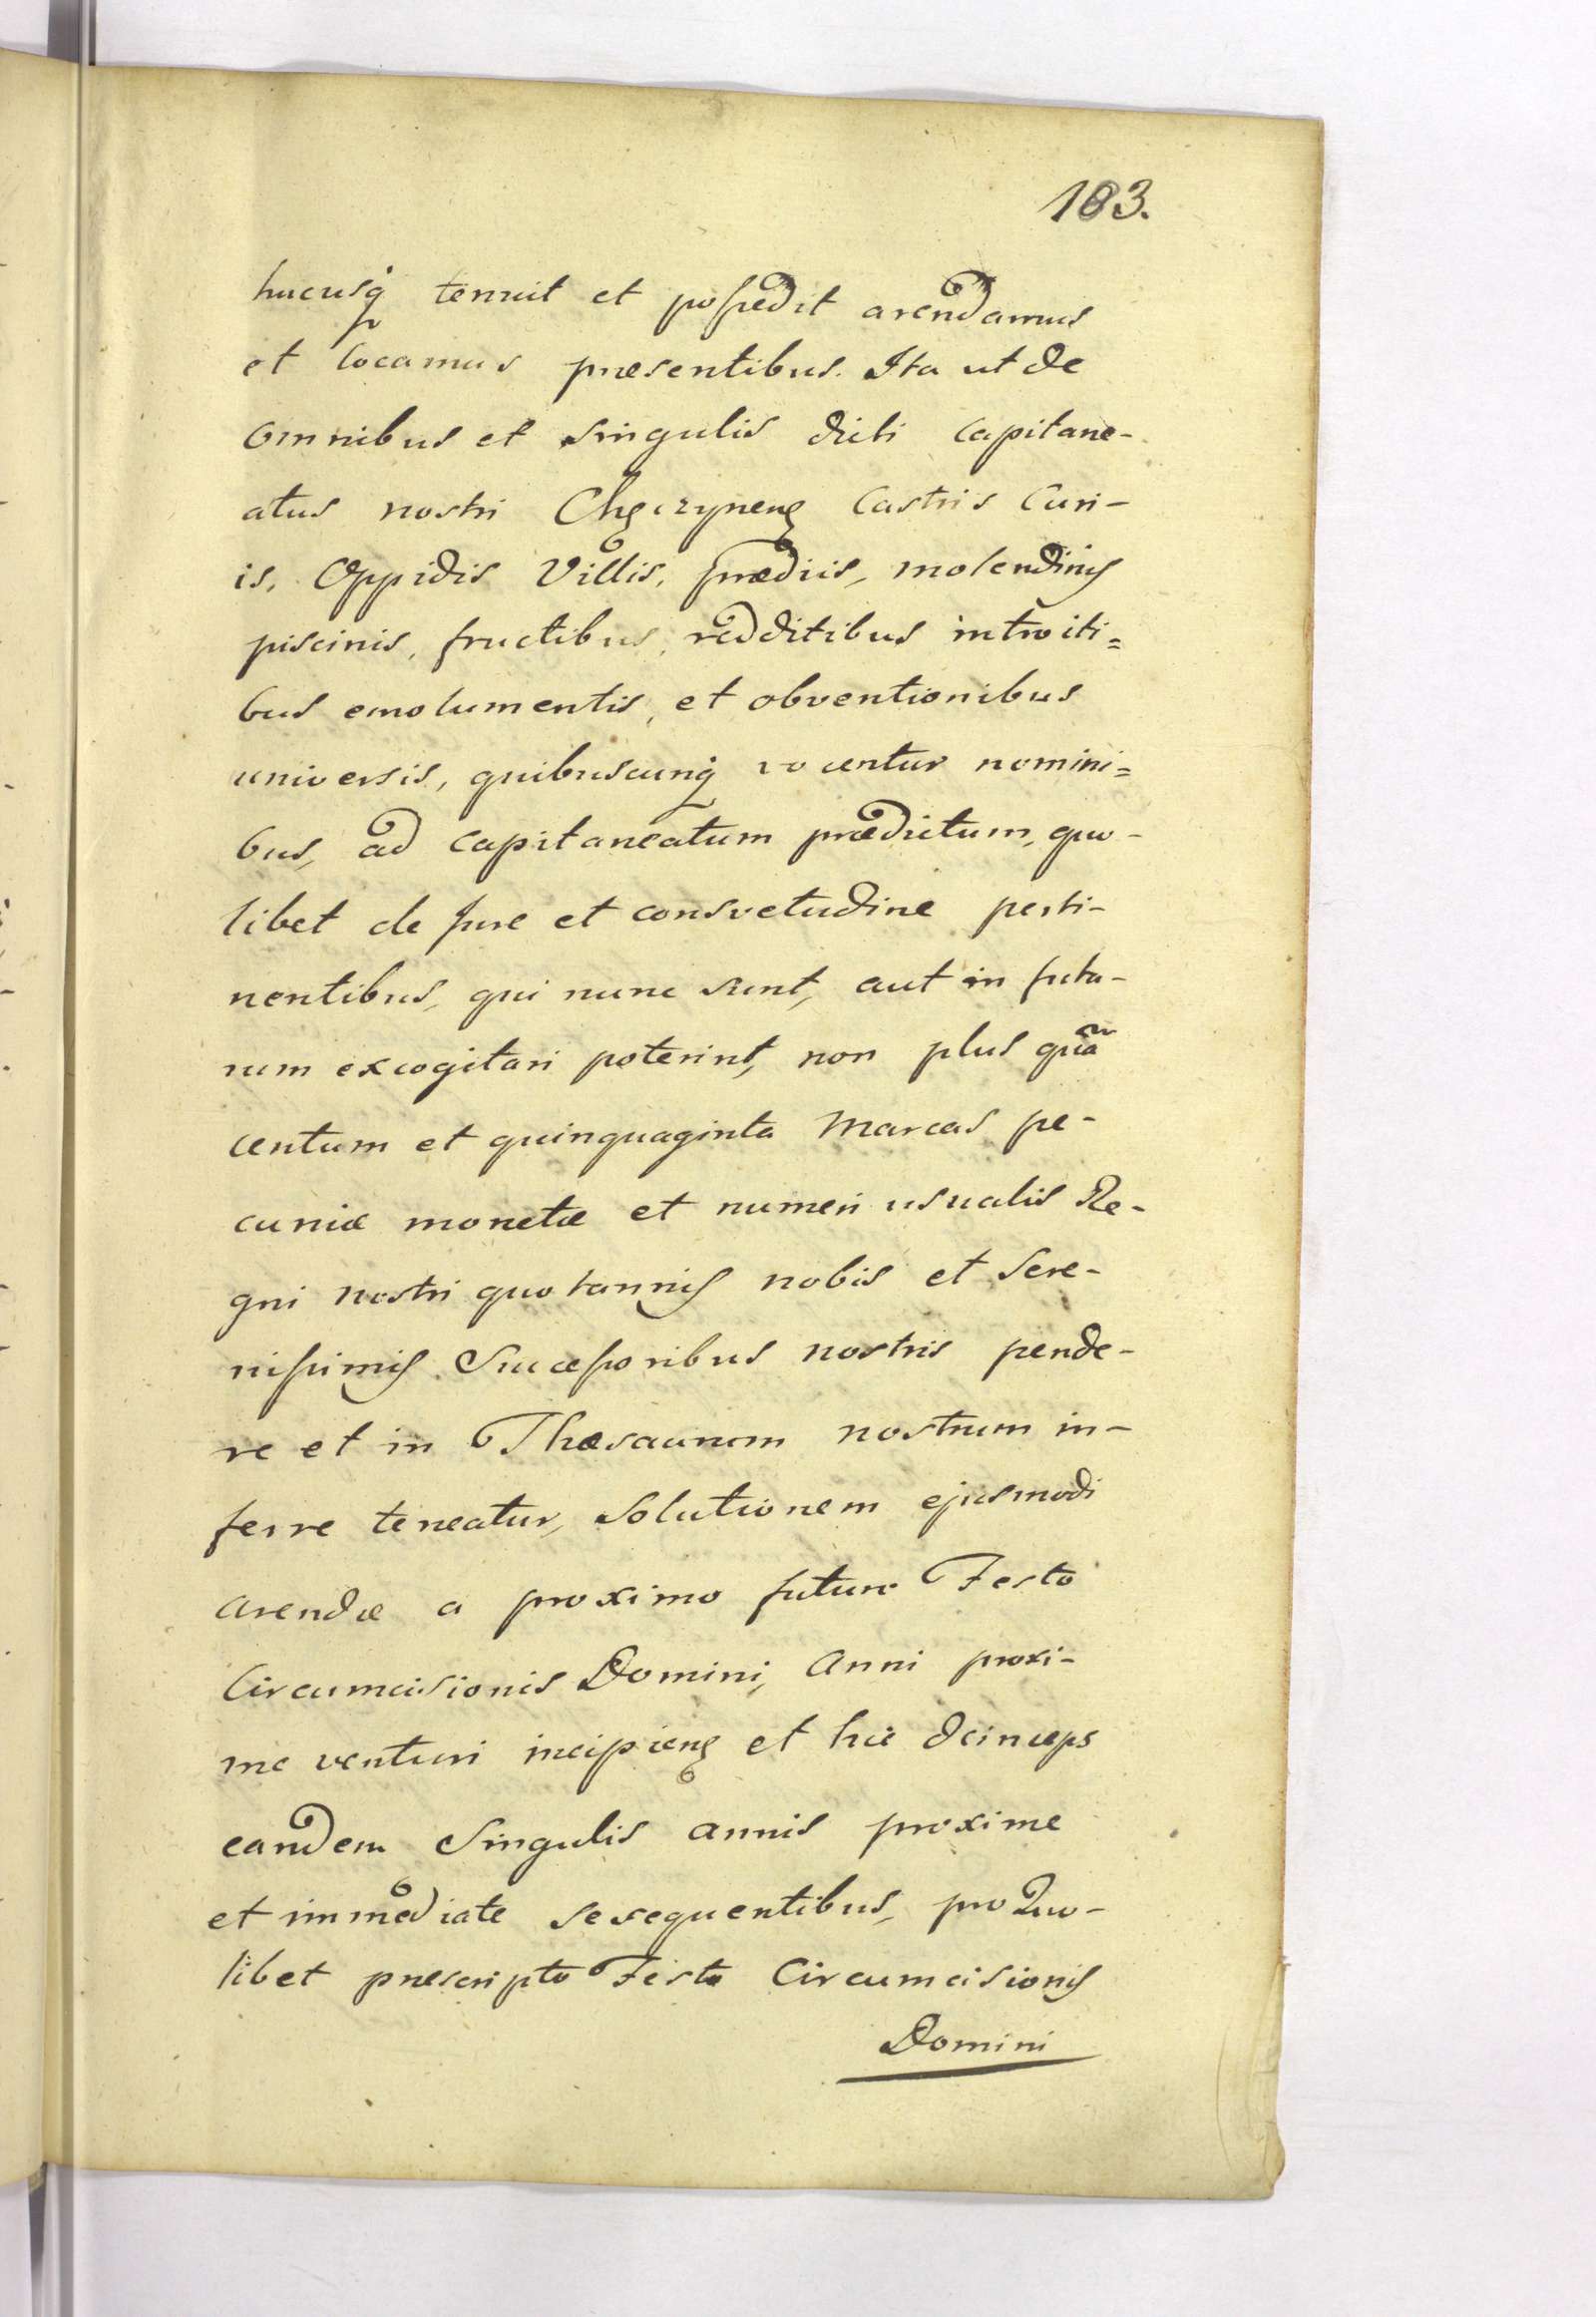 183.
hucusq́ tenuit et possedit arendamus
et locamus præsentibus. Ita ut de
omnibus et singulis dicti capitane-
atus nostri Chęczynens Castris Curi-
is, Oppidis Villis, prædiis, molendinis
piscinis, fructibus, redditibus introiti=
bus emolumentis, et obventionibus
universis, quibuscunq́ vocentur nomini=
bus, ad capitaneatum prædictum, quo-
libet de Jure et consvetudine perti-
nentibus, qui nunc sunt, aut in futu-
rum excogitari poterint, non plus quã
centum et quinquaginta Marcas pe-
cuniæ monetæ et numeri usualis Re-
gni nostri quotannis nobis et Sere-
nissimis Successoribus nostris pende-
re et in Thæsaurum nostrum in-
ferre teneatur, solutionem ejusmodi
arendæ a proximo futuro Festo
Circumcisionis Domini, Anni proxi-
me venturi incipiens et hic deinceps
eandem Singulis annis proxime
et immediate sesequentibus, pro Quo-
libet præscripto Festo Circumcisionis
Domini